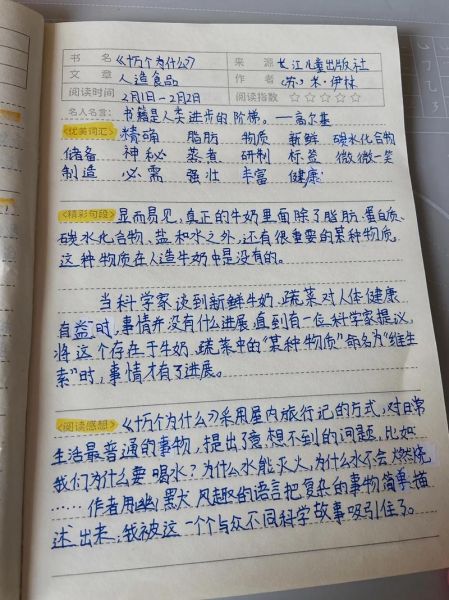 书名 《十万个为什么》 来源 长江儿童出版社
文章 人造食品 作者 (苏)米·伊林
阅读时间 2月1日－2月2日 阅读指数 ☆☆☆☆☆
名人名言: 书籍是人类进步的阶梯。——高尔基
<优美词汇> 精确 脂肪 物质 新鲜 碳水化合物
储备 神秘 蒸煮 研制 标签 微微一笑
制造 必需 强壮 丰富 健康
<精彩句段> 显而易见,真正的牛奶里面除了脂肪、蛋白质、
碳水化合物、盐和水之外,还有很重要的某种物质,
这种物质在人造牛奶中是没有的。
当科学家谈到新鲜牛奶、蔬菜对人体健康
有益时,事情并没有什么进展,直到有一位科学家提议,
将这个存在于牛奶、蔬菜中的“某种物质”命名为“维生
素”时,事情才有了进展。
<阅读感想> 《十万个为什么》采用屋内旅行记的方式,对日常
生活最普通的事物,提出了意想不到的问题,比如
我们为什么要喝水?为什么水能灭火,为什么水不会燃烧
……作者用幽默风趣的语言把复杂的事物简单描
述出来,我被这一个个与众不同科学故事吸引住了。